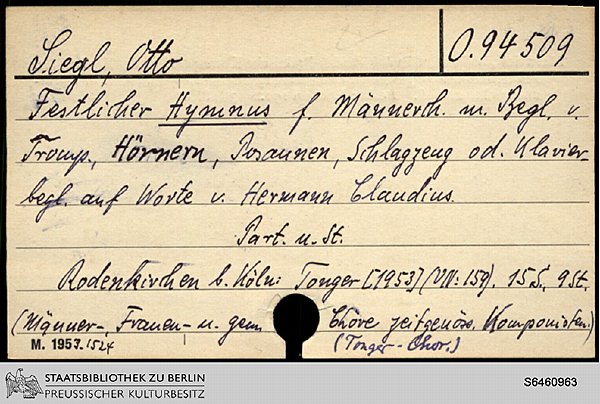 Siegl, Otto
O.94509
Festlicher Hymnus f. Männerch. m. Begl. v.
Tromp., Hörnern, Posaunen, Schlagzeug od. Klavier-
begl. auf Worte v. Hermann Claudius.
Part. u. St.
Rodenkirchen b. Köln: Tonger [1953] (VN: 159). 15 S., 9 St.
(Männer-, Frauen- u. gem. Chöre zeitgenöss. Komponisten.)
(Tonger-Chor.)
M. 1953.1524
STAATSBIBLIOTHEK ZU BERLIN
PREUSSISCHER KULTURBESITZ
S6460963